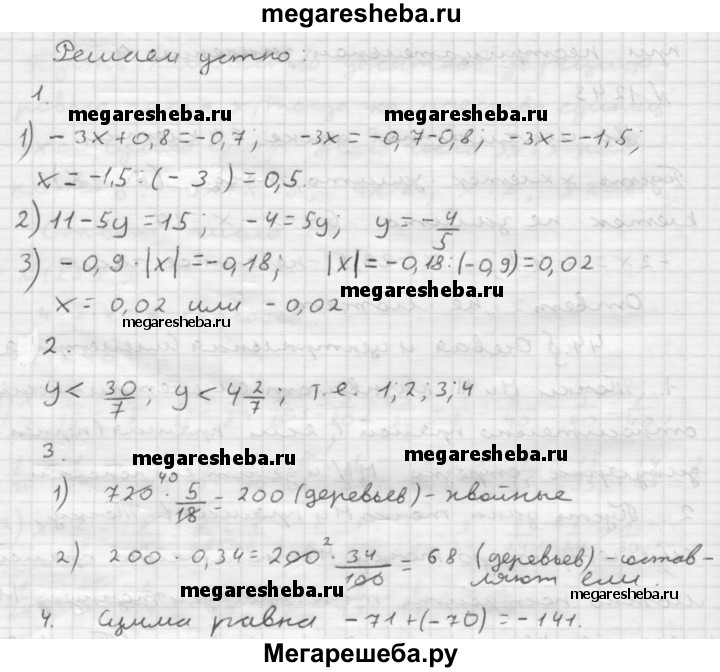 megaresheba.ru
Решаем устно:
1.
megaresheba.ru megaresheba.ru
1) -3x+0,8=-0,7; -3x=-0,7-0,8; -3x=-1,5;
x=-1,5:(-3)=0,5.
2) 11-5y=15; -4=5y; y=-4/5
3) -0,9·|x|=-0,18; |x|=-0,18:(-0,9)=0,02
megaresheba.ru
x=0,02 или -0,02
megaresheba.ru
2.
y< 30/7; y<4 2/7; т.е. 1;2;3;4
3.
megaresheba.ru megaresheba.ru
1) 720 40 · 5/18 = 200 (деревьев) - хвойные
2) 200 · 0,34 = 200 2 · 34/100 = 68 (деревьев) - состав-
ляют ели.
megaresheba.ru megaresheba.ru
4. Сумма равна -71+(-70)=-141.
Мегарешеба.ру